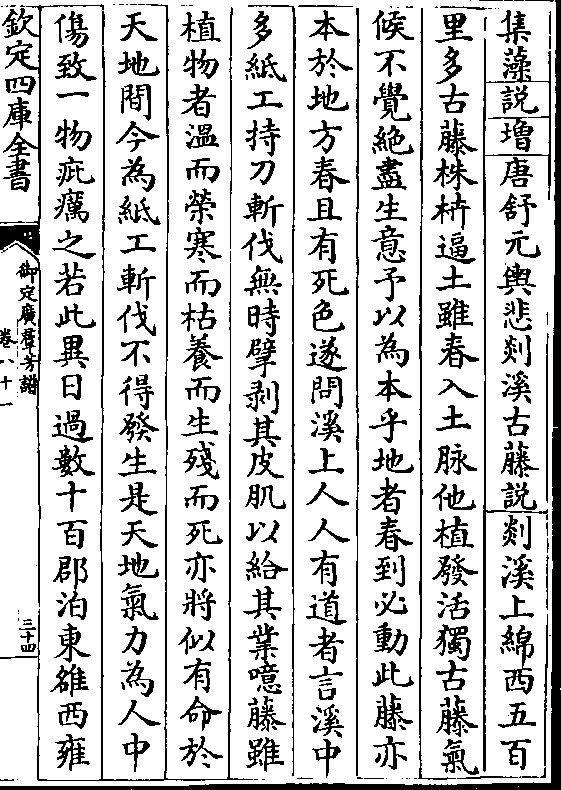 集藻説增唐舒元輿悲剡溪古藤説剡溪上綿西五百
里多古藤株枿逼土雖春入土脉他植發活獨古藤氣
候不覺絶盡生意予以為本乎地者春到必動此藤亦
本於地方春且有死色遂問溪上人人有道者言溪中
多紙工持刀斬伐無時擘剥其皮肌以給其業噫藤雖
植物者温而榮寒而枯養而生殘而死亦將似有命於
天地間今為紙工斬伐不得發生是天地氣力為人中
傷致一物疵癘之若此異日過數十百郡洎東雒西雍
欽定四庫全書
御定廣羣芳譜
卷八十一
三十四